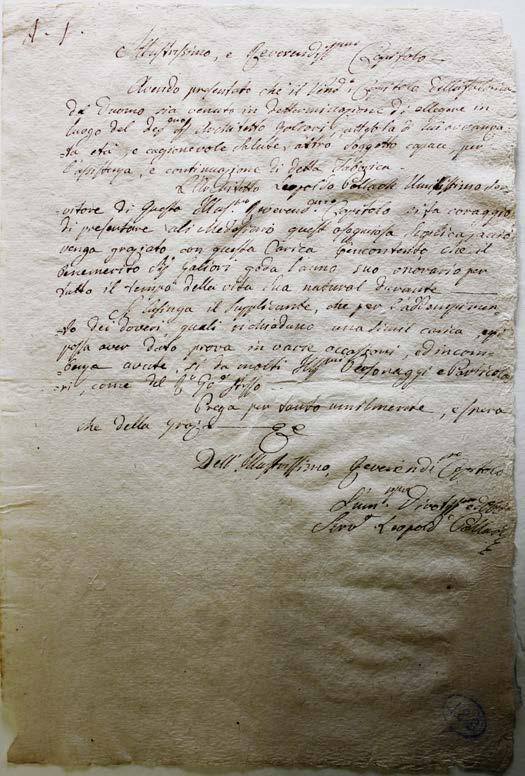 A. 1.
Illustrissimo, e Reverendis.mo Capitolo
Avendo presentato che il Capitolo della fabrica
del Duomo sia venuto in determinazione di elleggere in
luogo del Architetto Galiori atteso la di lui avanza
ta età, e cagionevole salute, altro soggetto capace per
l'assistenza, e continuazione di detta Fabrica
L'Architetto Leopoldo Pollach Umilissimo Ser
vitore di questo Illustr.mo Reverend.mo Capitolo si fa coraggio
di presentare al Medesimo quest'ossequiosa supplica, perchè
venga graziato con questa Carica, bencontento che il
benemerito Sig. Galiori goda l'anno suo onorario per
tutto il tempo della vita sua natural durante
Si lusinga il supplicante, che per l'addempimen
to dei doveri, quali richiedono una simil carica,
possa aver dato prova in varie occasioni, ed incom
benze avute, sì da molti Personaggi e Particola
ri, come del stesso
Prega per tanto umilmente, e spera
che della grazia
Dell'Illustrissimo, Reverendis.mo Capitolo
Serv.e Leopoldo Pollach